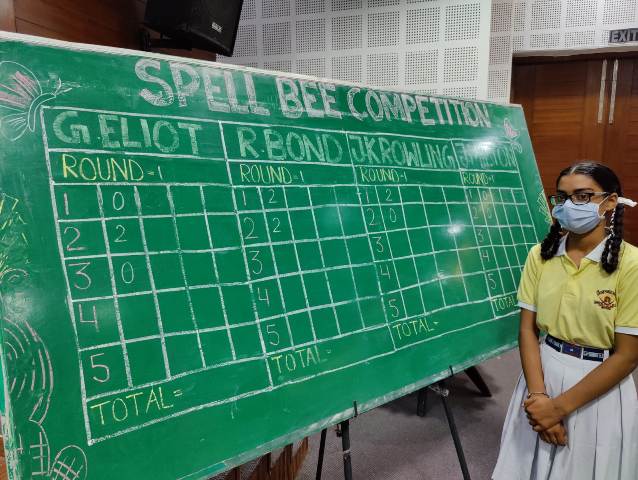 EXIT
SPELL BEE COMPETITION
G.ELIOT R.BOND JKROWLING
ROUND-1 ROUND-1 ROUND-1 ROUND-1
1 0 1 2 1 2 1
2 2 2 2 2 0
3 0 3 3 3
4 4 4 4
5 5 5 5
TOTAL= TOTAL- TOTAL= TOTAL